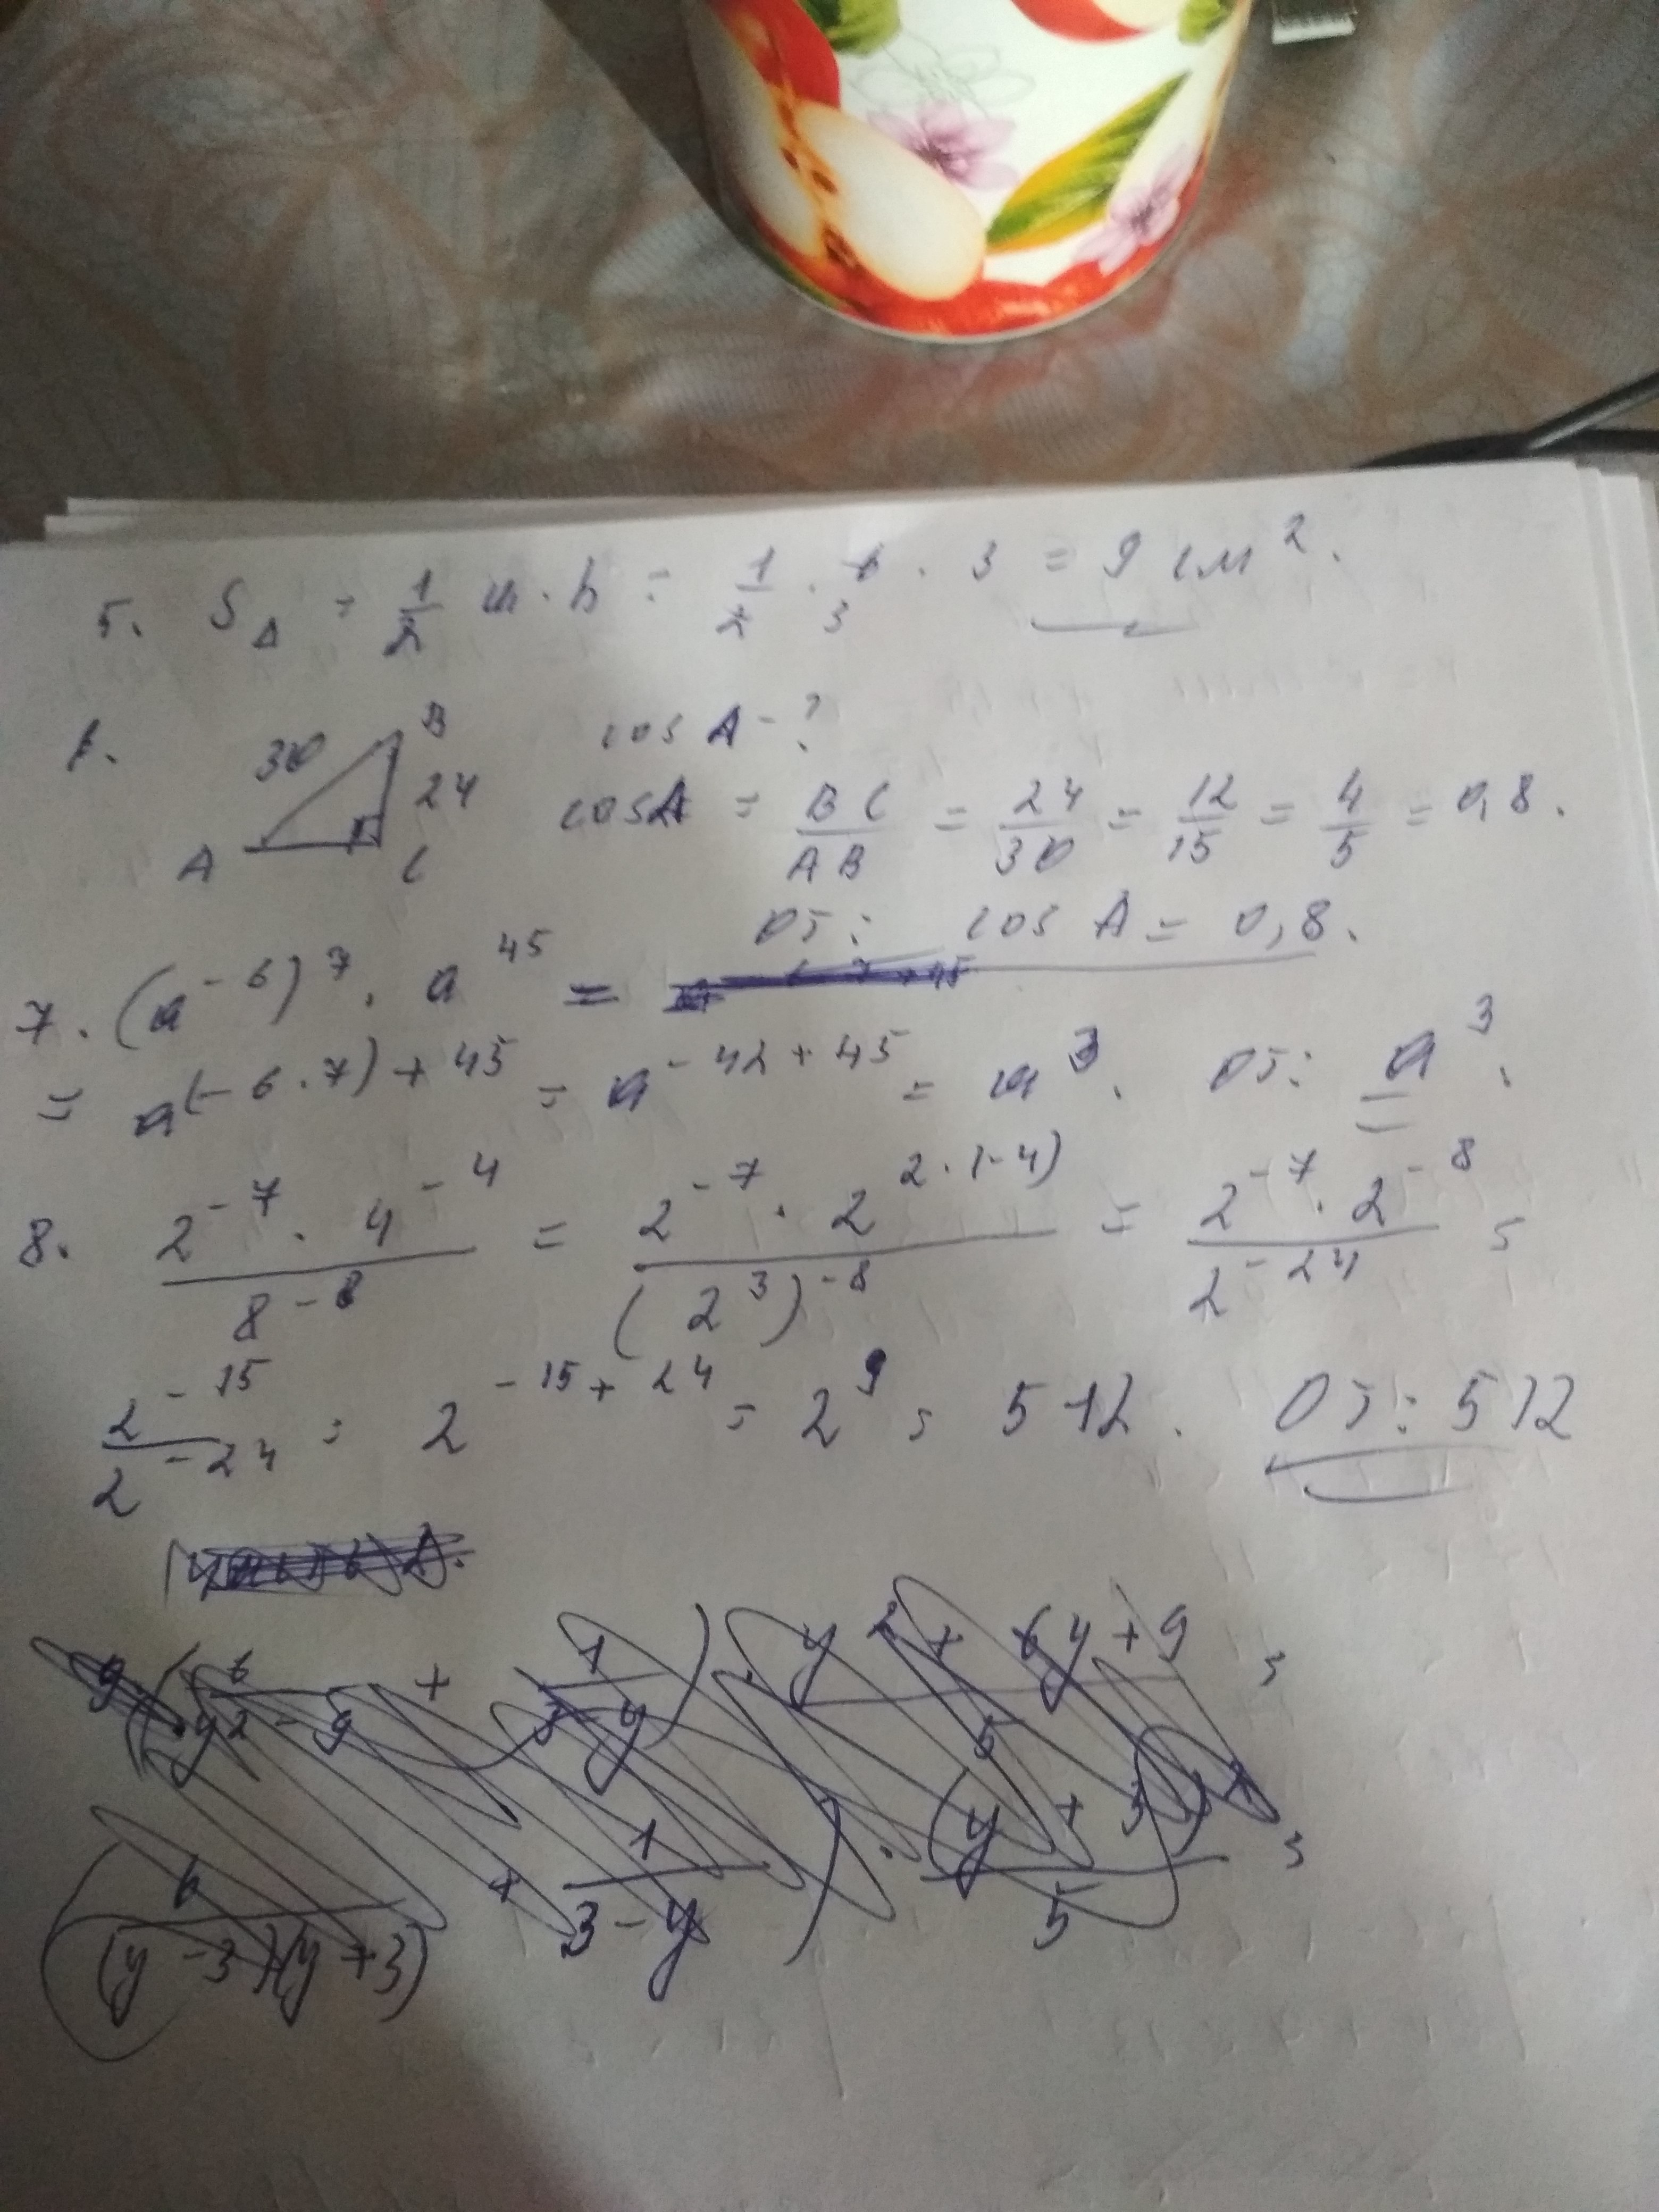 5. S△ = 1/2 a · h = 1/2 · 6 · 3 = 9 см².
3
6. 30 B 24 A C cos A - ?
cos A = BC/AB = 24/30 = 12/15 = 4/5 = 0,8.
От: cos A = 0,8.
7. (a⁻⁶)⁷ · a⁴⁵ =
= a^(-6·7)+45 = a^-42+45 = a³. От: a³.
8. 2⁻⁷ · 4⁻⁴ / 8⁻⁸ = 2⁻⁷ · 2^2·(-4) / (2³)⁻⁸ = 2⁻⁷ · 2⁻⁸ / 2⁻²⁴ =
2⁻¹⁵ / 2⁻²⁴ = 2^-15+24 = 2⁹ = 512. От: 512
(6 / y2 - 9 + 1 / 3-y) · y² + 6y + 9 / 5 =
(6 / (y-3)(y+3) + 1 / 3-y) · (y+3)² / 5 =